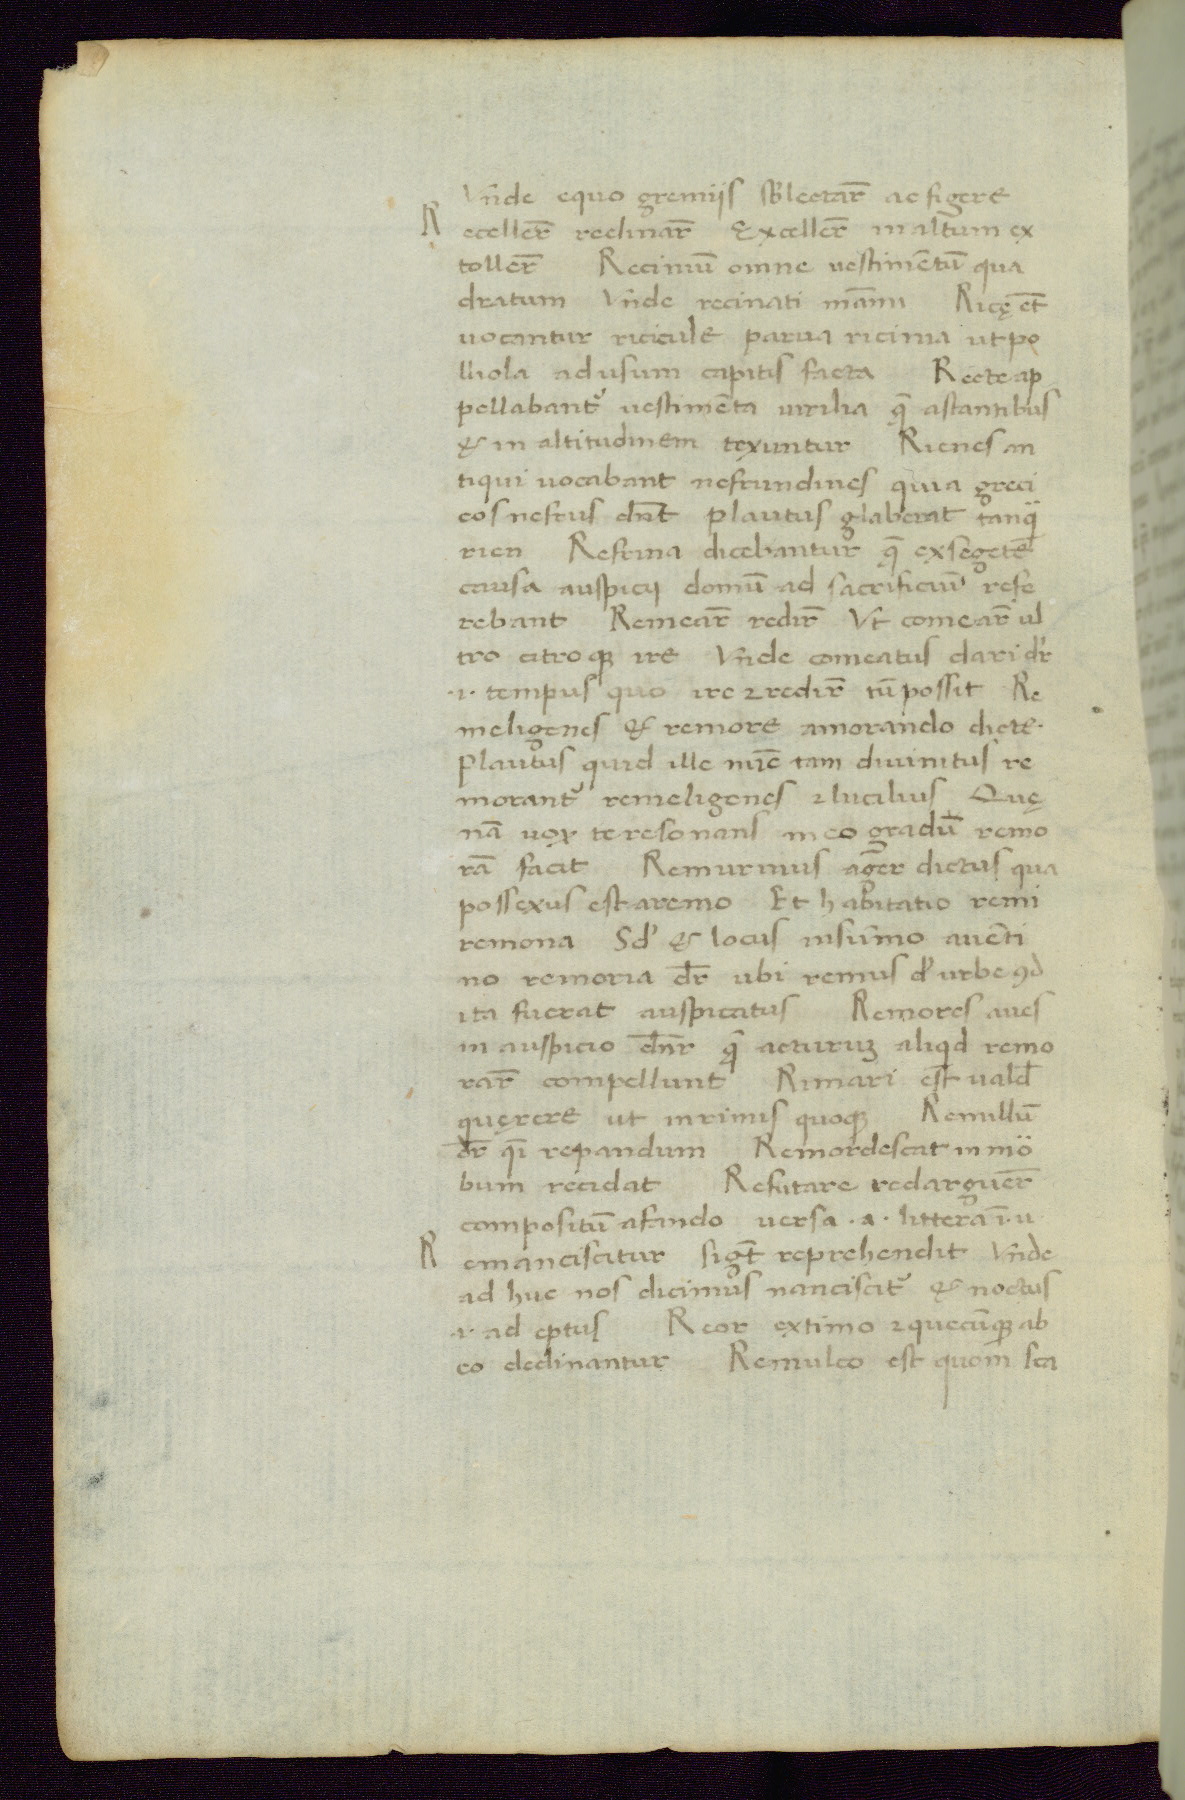 Vn̄de equo gremijs sb̄lectar̄ ac figere
Recellēr reclinar̄ Excellēr in altum ex
tollēr Reciniū omne vestimētū qua
dratum Vn̄de recinati mīami Ricę et̄
vocantur ricicule parva ricinia ut po
lliola ad usum capitis facta Recte ap
pellabant᷑ vestimēta virilia q̄ astantibus
& in altitudinem texuntur Rienes an
tiqui vocabant nefrundines quia greci
eos nefrus dn̄t Plautus glaberat tanq̄
rien Refriua dicebantur q̄ ex segetē
causa auspicij domū ad sacrificiū refe
rebant Remear̄ redir̄ Vt comear̄ ul
tro citroqꝫ ire Vn̄de comeatus dari dr̄
.i. tempus quo ire ⁊ redir̄ tū possit Re
meligenes & remore a morando dicte.
Plautus quid ille nūc tam divinitus re
morant᷑ remeligenes ⁊ lucilius Quę
nā vox te resonans meo gradū remo
rā facit Remurinus ager dictus qua
possexus est a remo Et habitatio remi
remona Sd᷑ & locus in sūmo avēti
no remoria dr̄ ubi remus d᷑ urbe ꝯd
ita fuerat auspicatus Remores aves
in auspicio dn̄r q̄ acturuꝫ aliqd remo
rar̄ compellunt Rimari est vald̄
quęrere ut in rimis quoqꝫ Remillū
dr̄ q̄i repandum Remordescat in mo
bum recidat Refutare redarguer̄
compositū a fando versa .a. litterā ī .u.
Remanciscitur sigt̄ reprehendit Vn̄de
ad huc nos dicimus nanciscit᷑ & noctus
.i. ad eptus Reor extimo ⁊ quecūqꝫ ab
eo declinantur Remulco est quom sca